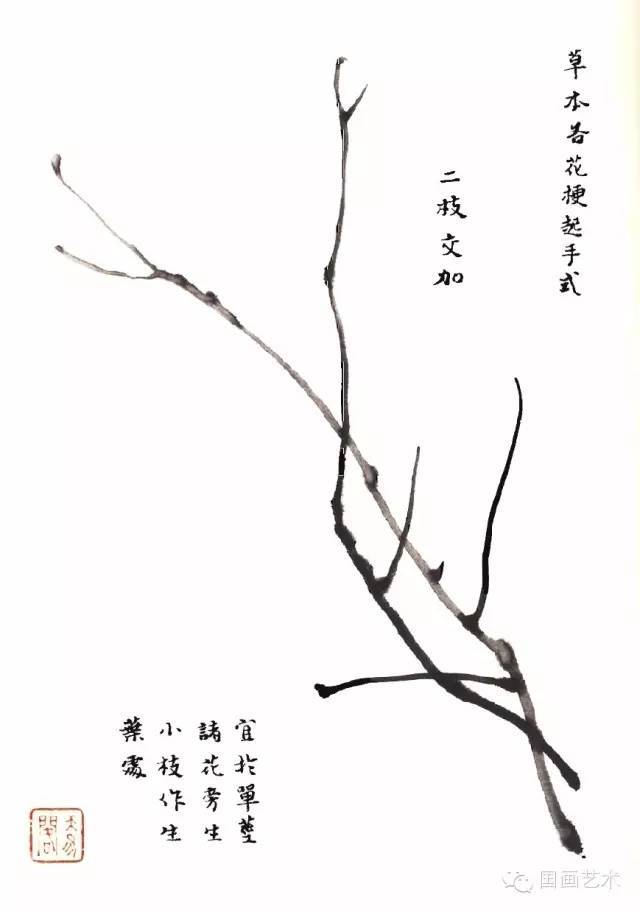 草本各花梗起手式
二枝交加
宜於單莖
諸花旁生
小枝作生
葉處
国画艺术